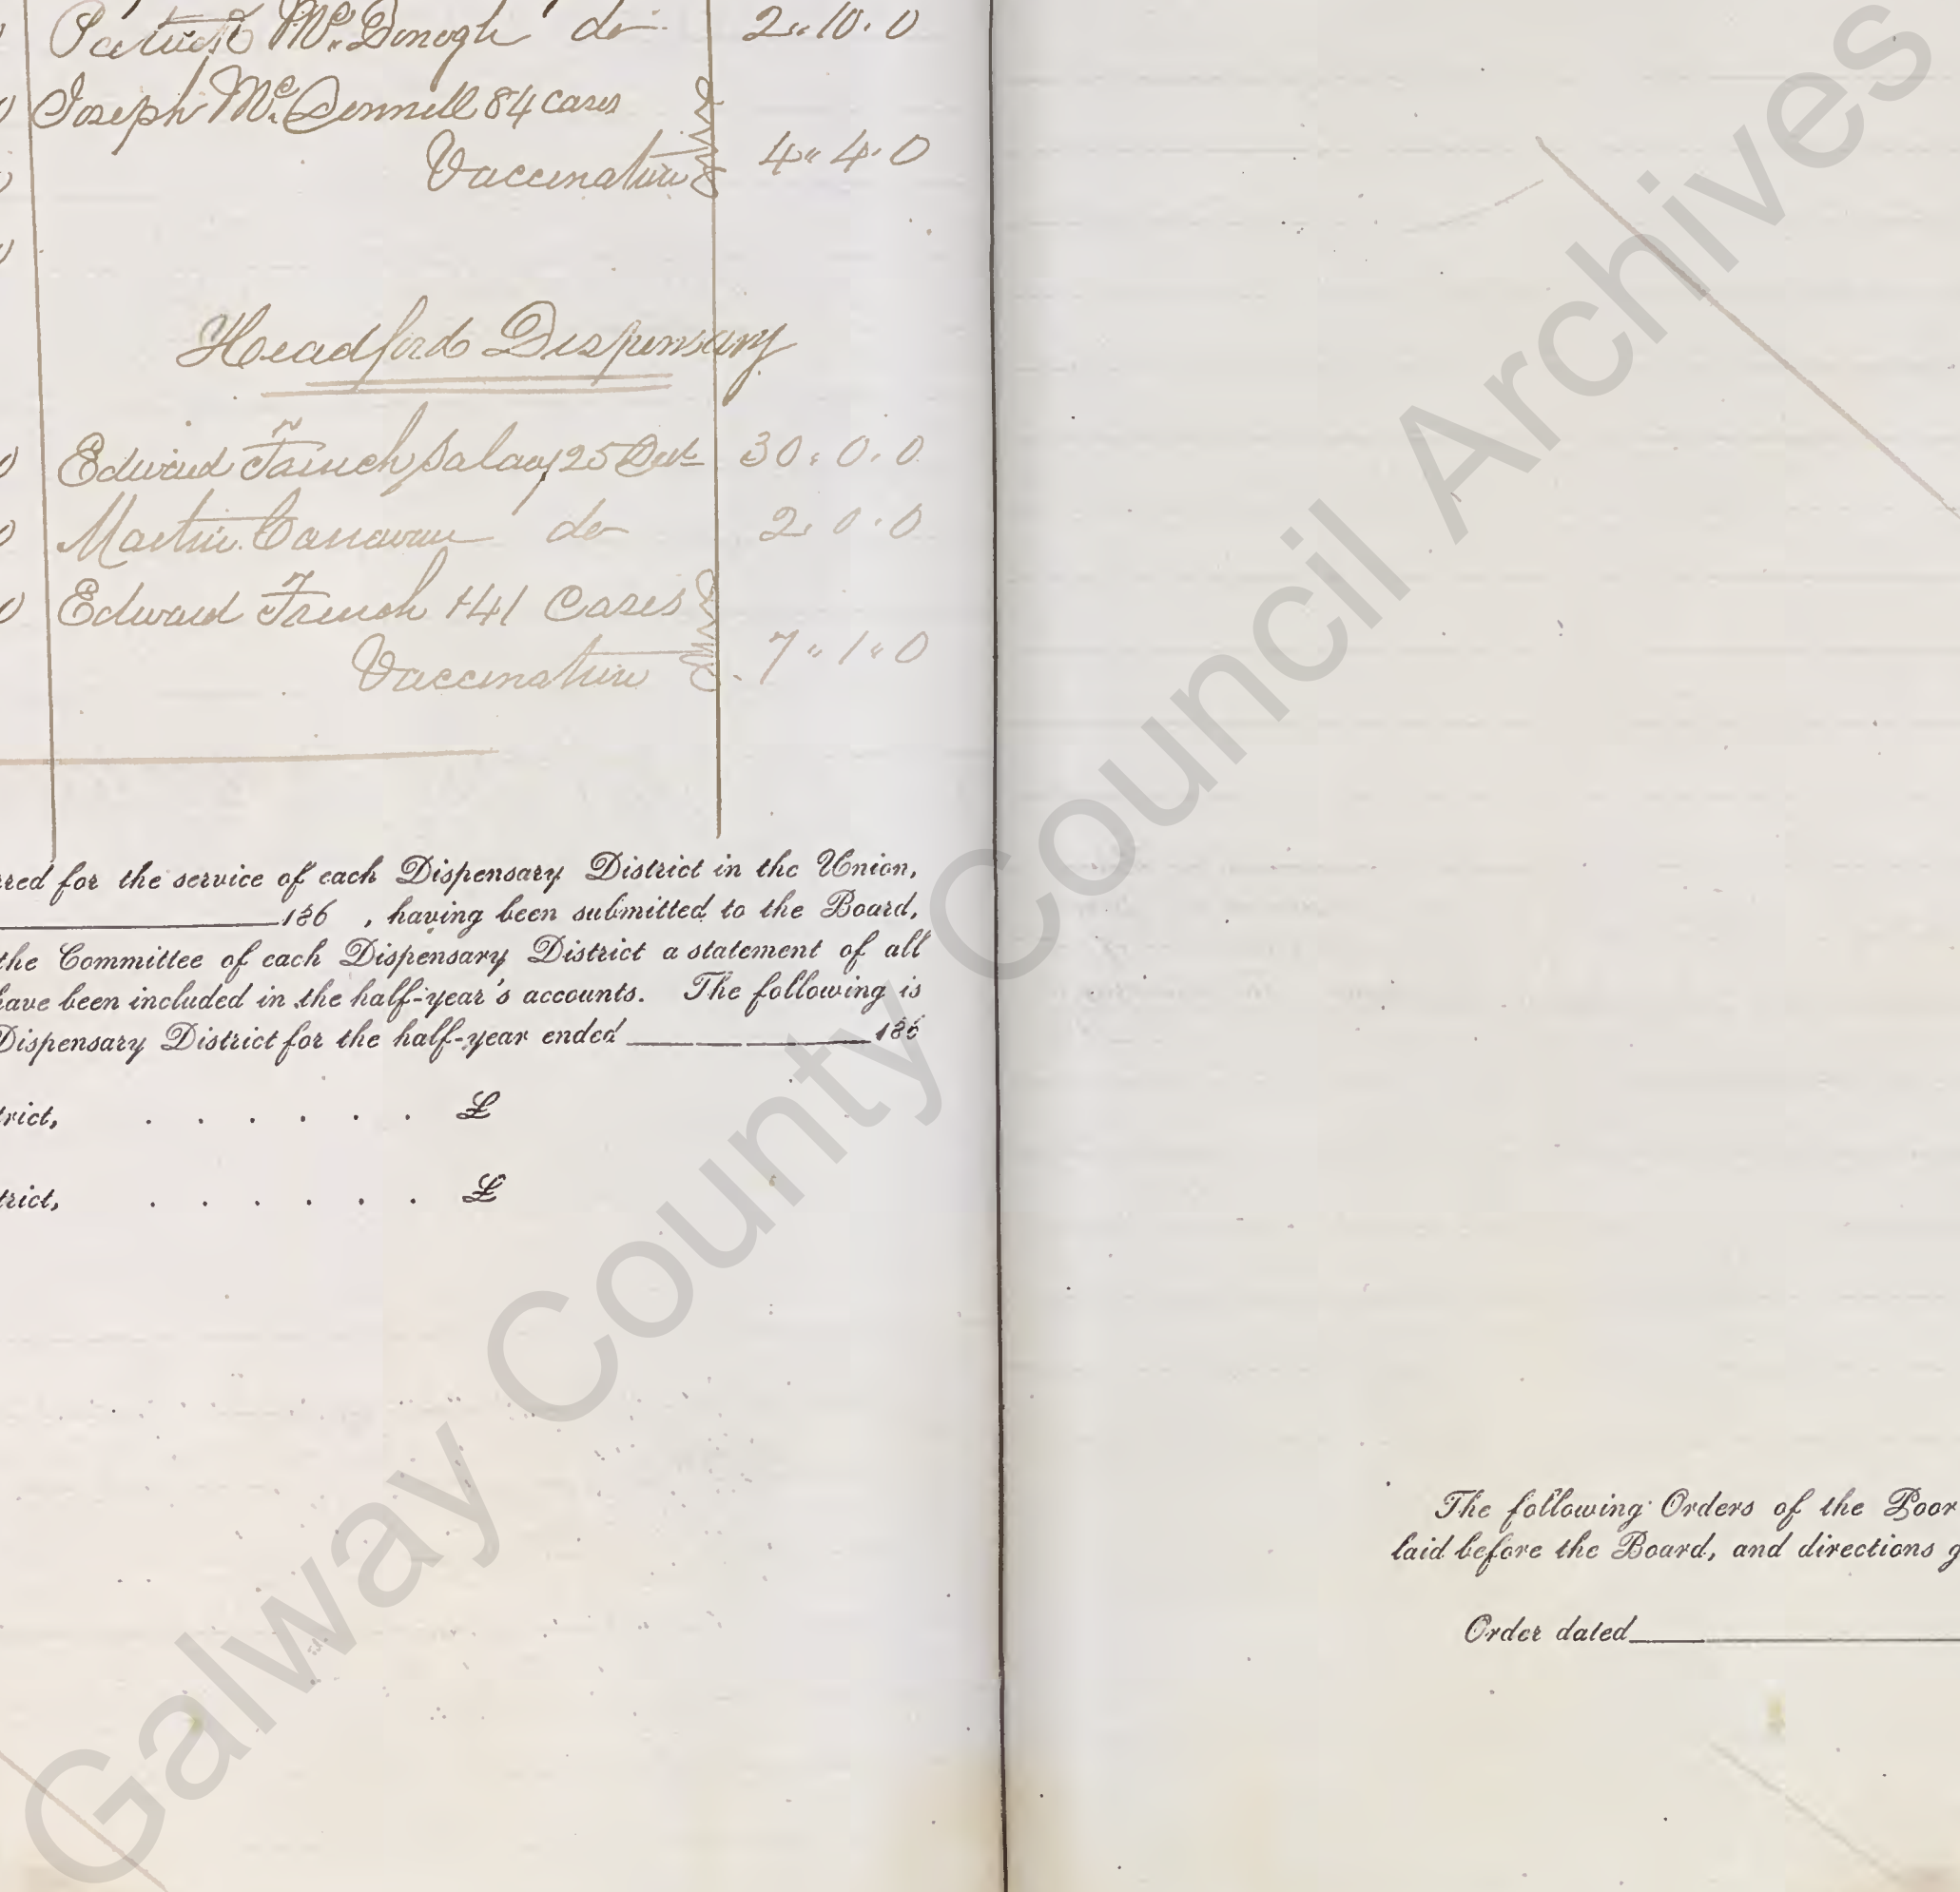 Patrick McDonogh do 2.10.0
Joseph McDonnell 84 cases
Vaccination 4.4.0
Headford Dispensary
Edward French Salary 25 30.0.0
Martin Canavan do 2.0.0
Edward French 141 Cases
Vaccination 7.1.0
red for the service of each Dispensary District in the Union,
186 , having been submitted to the Board,
the Committee of each Dispensary District a statement of all
have been included in the half-year's accounts. The following is
Dispensary District for the half-year ended 186
trict, . . . . . . £
trict, . . . . . . £
The following Orders of the Poor
laid before the Board, and directions g
Order dated
Galway County Council Archives